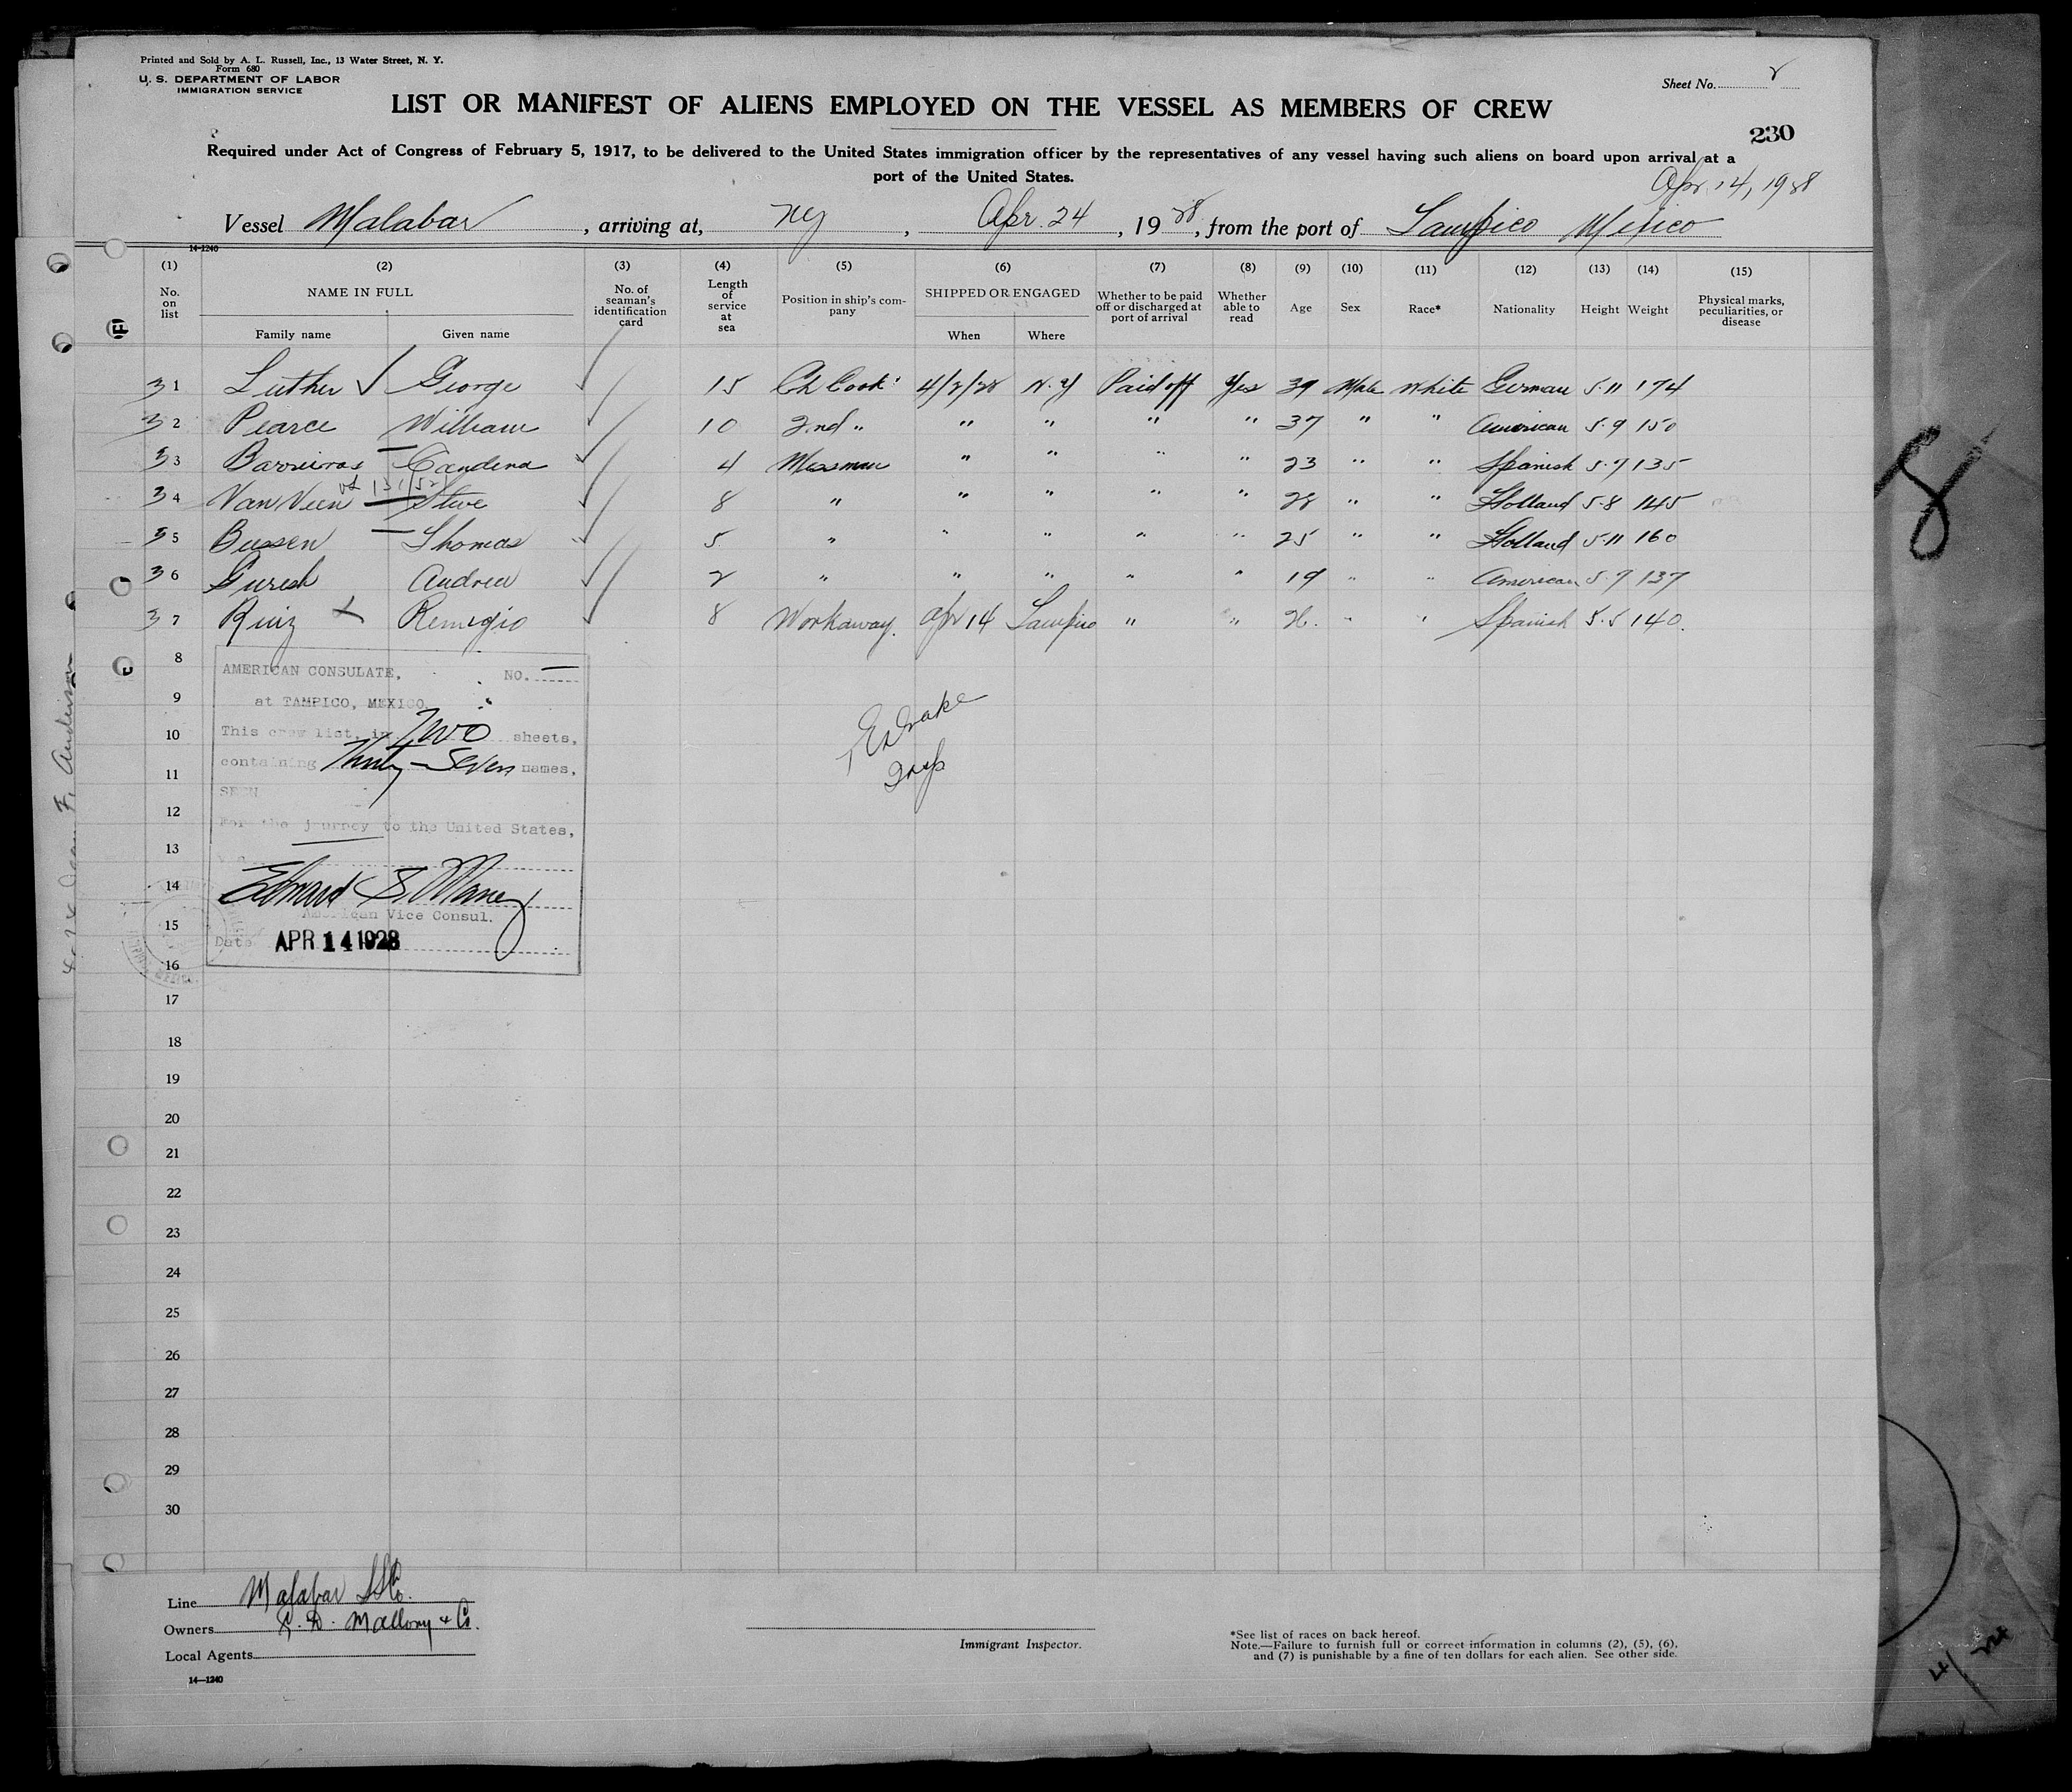 Printed and Sold by A. L. Russell, Inc., 13 Water Street, N. Y.
Form 680
U. S. DEPARTMENT OF LABOR
IMMIGRATION SERVICE
Sheet No. 2
LIST OR MANIFEST OF ALIENS EMPLOYED ON THE VESSEL AS MEMBERS OF CREW
230
Required under Act of Congress of February 5, 1917, to be delivered to the United States immigration officer by the representatives of any vessel having such aliens on board upon arrival at a
port of the United States.
Apr. 14, 1928
Vessel Malabar, arriving at, NY, Apr. 24, 1928, from the port of Tampico Mexico
14-1240
(1) (2) (3) (4) (5) (6) (7) (8) (9) (10) (11) (12) (13) (14) (15)
No. on list NAME IN FULL Family name Given name No. of seaman's identification card Length of service at sea Position in ship's company SHIPPED OR ENGAGED When Where Whether to be paid off or discharged at port of arrival Whether able to read Age Sex Race* Nationality Height Weight Physical marks, peculiarities, or disease
31 Luther George 15 Ch Cook 4/2/28 N.Y Paid off Yes 39 Male White German 5.11 174
32 Pearce William 10 2nd " " " " " 37 " " American 5.9 150
33 Barreiras 4 Messman " " " " 23 " " Spanish 5.7 135
34 Van Veen Steve 8 " " " " " 28 " " Holland 5.8 145
35 Bussen Thomas 5 " " " " " 25 " " Holland 5.11 160
36 Andrew 2 " " " " " 19 " " American 5.7 137
37 Ruiz Remigio 8 Workaway. Apr 14 Tampico " " 26. " " Spanish 5.5 140.
8
AMERICAN CONSULATE, NO. —
9
at TAMPICO, MEXICO.
10
This crew list, in Two sheets,
11
containing Thirty-Seven names,
SEEN
12
For the journey to the United States,
13
14
Edward S. Maney
American Vice Consul.
15
Date APR 14 1928
16
E Drake
Insp
17
18
19
20
21
22
23
24
25
26
27
28
29
30
Line Malabar SS Co.
Owners C. D. Mallory & Co.
Local Agents
14—1240
Immigrant Inspector.
*See list of races on back hereof.
Note.—Failure to furnish full or correct information in columns (2), (5), (6),
and (7) is punishable by a fine of ten dollars for each alien. See other side.
F. Anderson
8
4/24